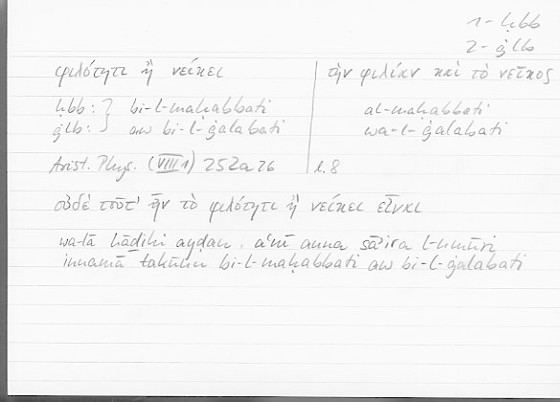 1 - ḥbb
2 - ġlb
φιλότητι ἢ νείκει | τὴν φιλίαν καὶ τὸ νεῖκος
ḥbb: } bi-l-maḥabbati al-maḥabbati
ġlb: } aw bi-l-ġalabati wa-l-ġalabati
Arist. Phys. (VIII 1) 252a26 l. 8
οὐδὲ τοῦτ' ἦν τὸ φιλότητι ἢ νείκει εἶναι
wa-lā hāḏihi ayḍan, aʿnī anna sāʾira l-umūri
innamā takūnu bi-l-maḥabbati aw bi-l-ġalabati